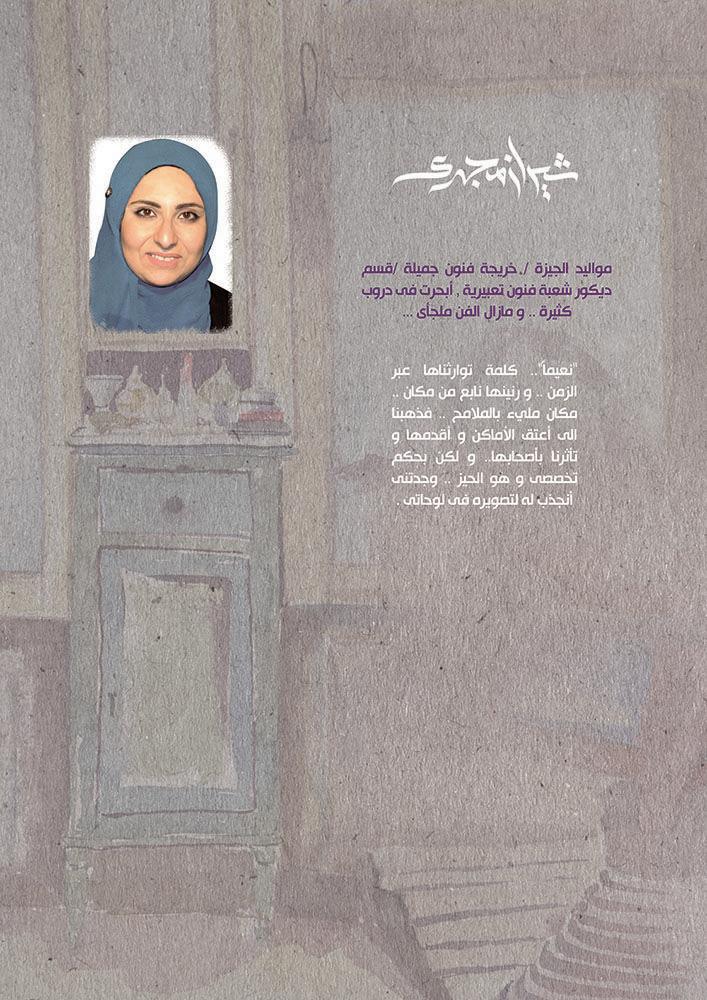 شيراز مجدى
مواليد الجيزة /، خريجة فنون جميلة /قسم
ديكور شعبة فنون تعبيرية , أبحرت فى دروب
كثيرة .. و مازال الفن ملجأى ...
"نعيماً".. كلمة توارثناها عبر
الزمن .. و رنينها نابع من مكان ..
مكان مليء بالملامح .. فذهبنا
الى أعتق الأماكن و أقدمها و
تأثرنا بأصحابها.. و لكن بحكم
تخصصى و هو الحيز .. وجدتنى
أنجذب له لتصويره فى لوحاتى .